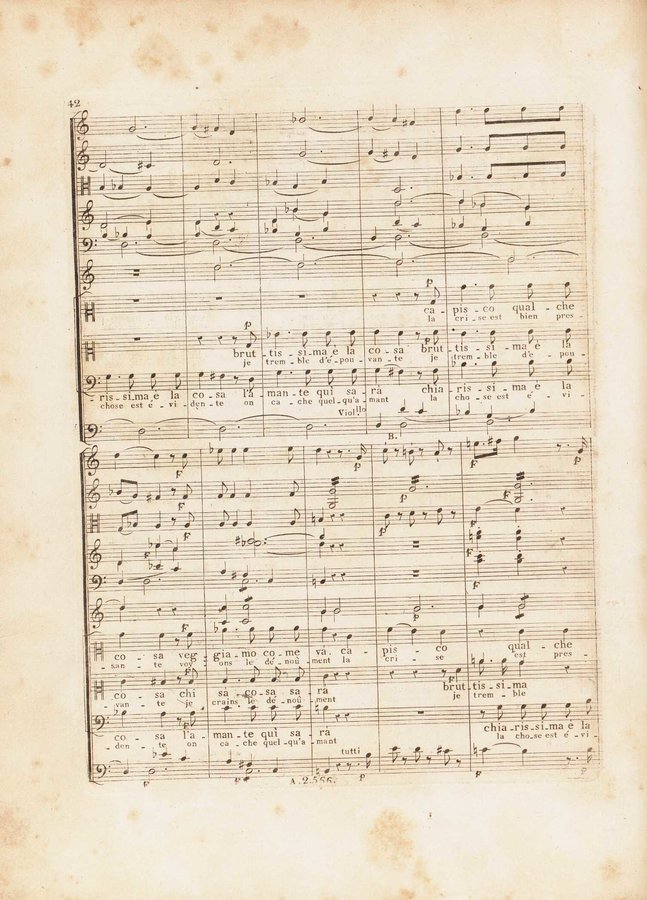 42
p
ca - pis - co qual - che
la cri - se est bien pres -
p p
brut - tis - si - ma è la co - sa brut - tis - si - ma è la
je trem - ble d'é - pou - van - te je trem - ble d'é - pou -
ris - si - ma è la co - sa l'a - man - te quì sa - rà chia - ris - si - ma è la
chose est é - vi - den - te on ca - che quel - qu'a - mant la cho - se est é - vi -
Viol.llo
B.
F p F p
co - sa veg - gia - mo co - me va. ca - pis - co qual - che
san - te voy - ons le dé - noû - ment la cri - se est pres -
co - sa chi sa co - sa sa - rà brut - tis - si - ma
van - te je crains le dé - noû - ment je trem - ble
co - sa l'a - man - te quì sa - rà chia - ris - si - ma è la
den - te on ca - che quel - qu'a - mant la cho - se est é - vi -
tutti
A. 2.566.